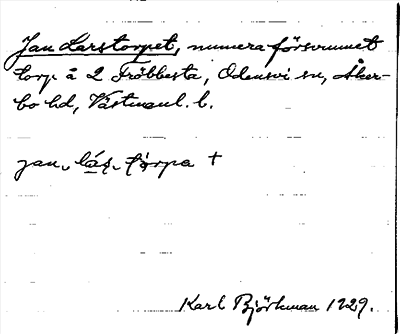 Jan Larstorpet, numera försvunnet
torp å 2 Fröbbesta, Odensvi sn, Åker-
bo hd, Västmanl. l.
jan, lás, tórpa †
Karl Björkman 1929.